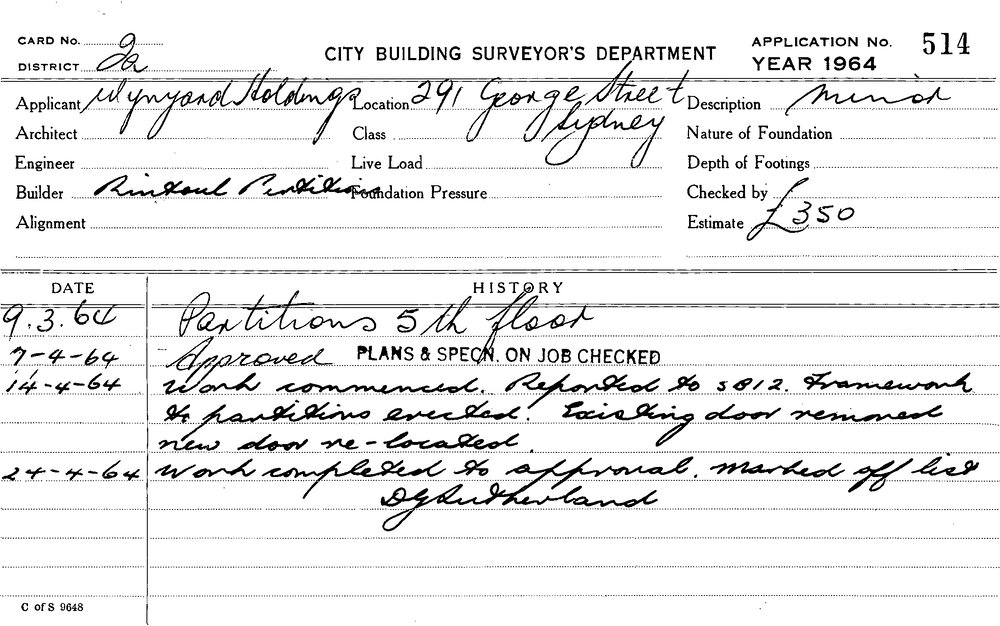 CARD No. 2a
CITY BUILDING SURVEYOR'S DEPARTMENT
APPLICATION No. 514
DISTRICT 2a
YEAR 1964
Applicant Wynyard Holdings Location 291 George Street Sydney Description Minor
Architect Class Nature of Foundation
Engineer Live Load Depth of Footings
Builder Rintoul Partitions Foundation Pressure Checked by
Alignment Estimate £350
DATE HISTORY
9.3.64 Partitions 5th floor
7-4-64 Approved PLANS & SPECN. ON JOB CHECKED
14-4-64 Work commenced. Reported to SB12. Framework
to partitions erected. Existing door removed
new door re-located.
24-4-64 Work completed to approval. marked off list
DGSutherland
C of S 9648